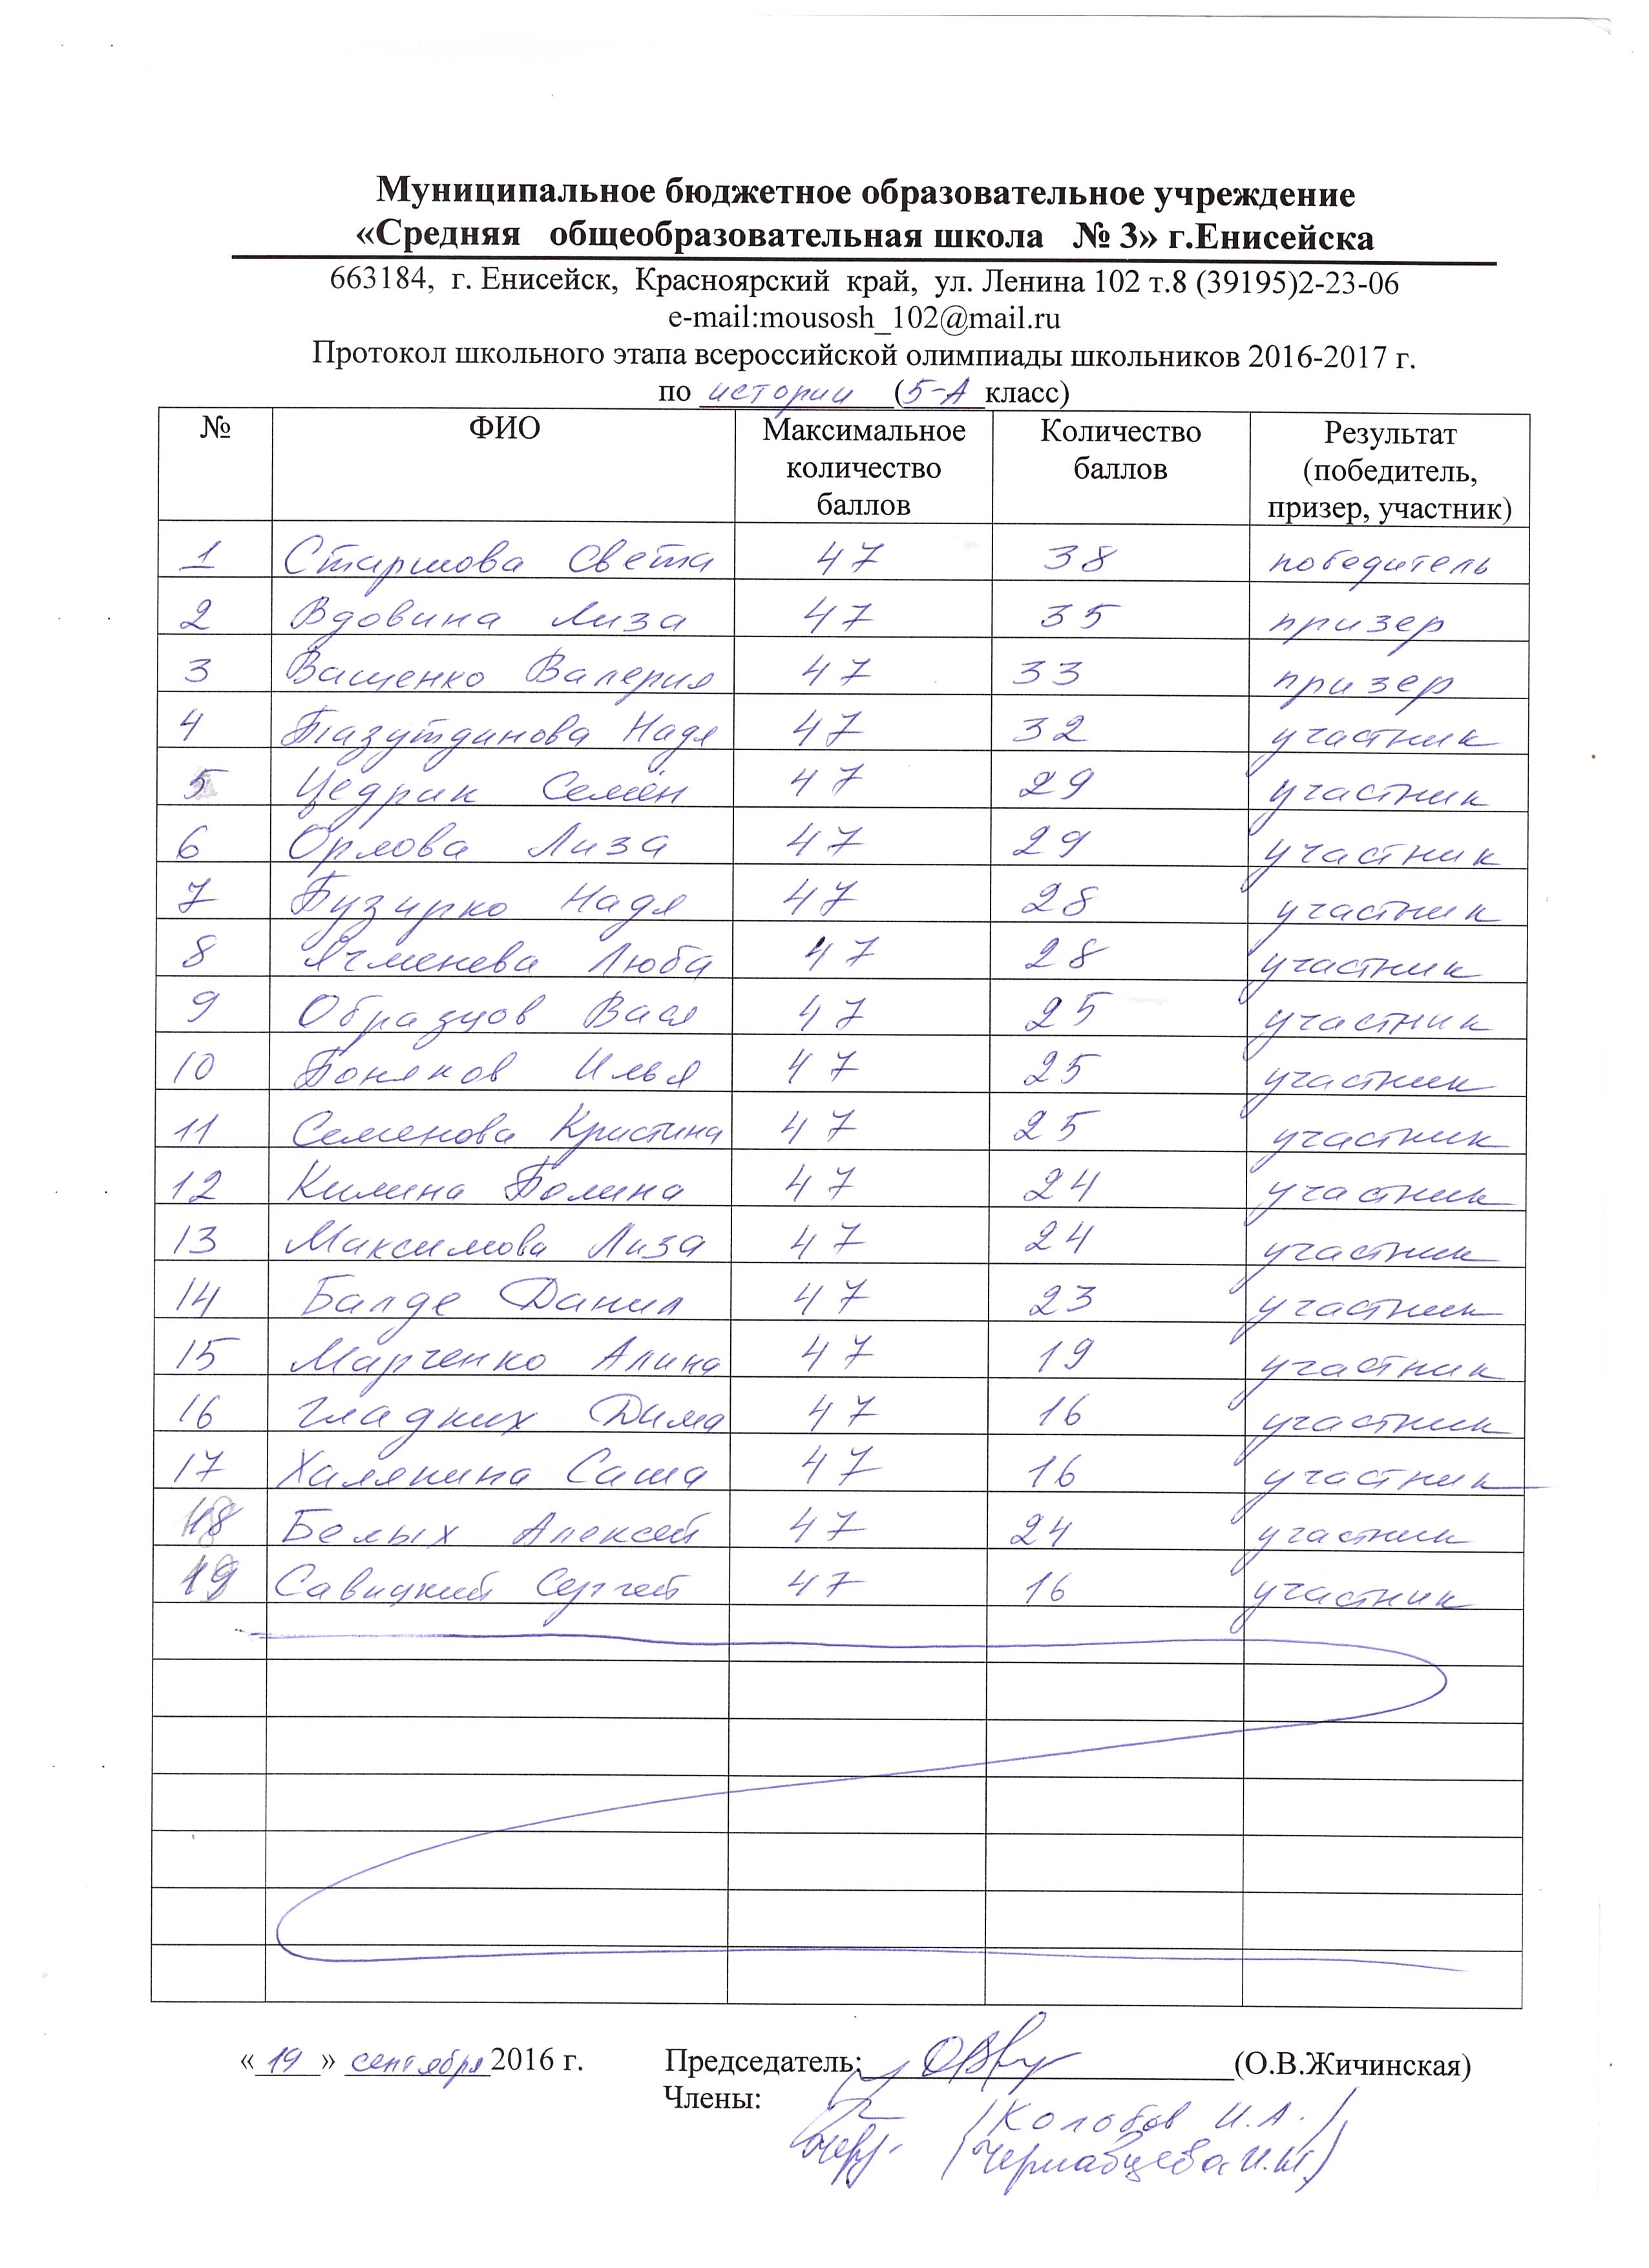 Муниципальное бюджетное образовательное учреждение
«Средняя общеобразовательная школа № 3» г.Енисейска
663184, г. Енисейск, Красноярский край, ул. Ленина 102 т.8 (39195)2-23-06
e-mail:mousosh_102@mail.ru
Протокол школьного этапа всероссийской олимпиады школьников 2016-2017 г.
по истории (5-А класс)
№ ФИО Максимальное количество баллов Количество баллов Результат (победитель, призер, участник)
1 Старшова Света 47 38 победитель
2 Вдовина Лиза 47 35 призер
3 Ващенко Валерия 47 33 призер
4 Надя 47 32 участник
5 Цедрик Семён 47 29 участник
6 Орлова Лиза 47 29 участник
7 Пузирко Надя 47 28 участник
8 Ячменева Люба 47 28 участник
9 Образцов Вася 47 25 участник
10 Поняков Илья 47 25 участник
11 Семенова Кристина 47 25 участник
12 Килина Полина 47 24 участник
13 Максимова Лиза 47 24 участник
14 Балде Данил 47 23 участник
15 Марченко Алина 47 19 участник
16 Гладких Дима 47 16 участник
17 Халяпина Саша 47 16 участник
18 Белых Алексей 47 24 участник
19 Савицкий Сергей 47 16 участник
«19» сентября 2016 г. Председатель: (О.В.Жичинская)
Члены:
/Колобов И.А./